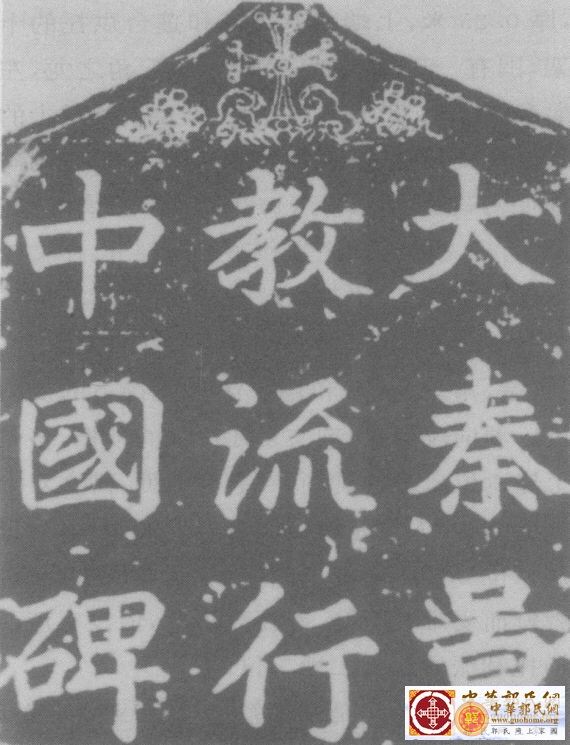 大秦景
教流行
中國碑
中華郭氏網
中華郭氏網
www.guohome.org
郭氏網上家園